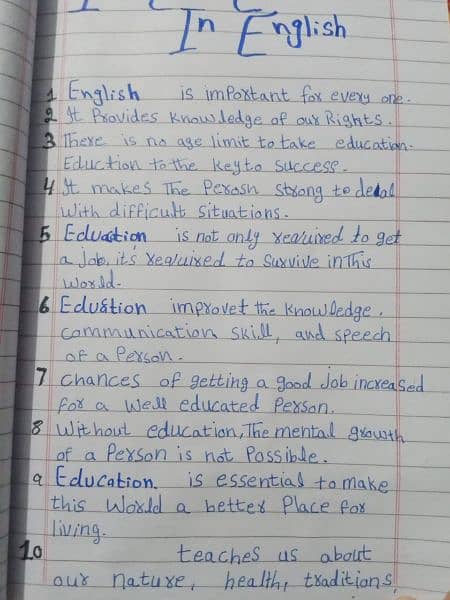 In English
1 English is important for every one.
2 It Provides knowledge of our Rights.
3 There is no age limit to take education.
Eduction to the key to success.
4 It makes The Perosn strong to dedal
with difficult situations.
5 Education is not only required to get
a Job, its required to survive in This
World.
6 Edustion improvet the knowledge,
communication skill, and speech
of a Person.
7 chances of getting a good Job increased
for a well educated Person.
8 Without education, The mental growth
of a Person is not Possible.
9 Education. is essential to make
this World a better Place for
living.
10 teaches us about
our nature, health, traditions,